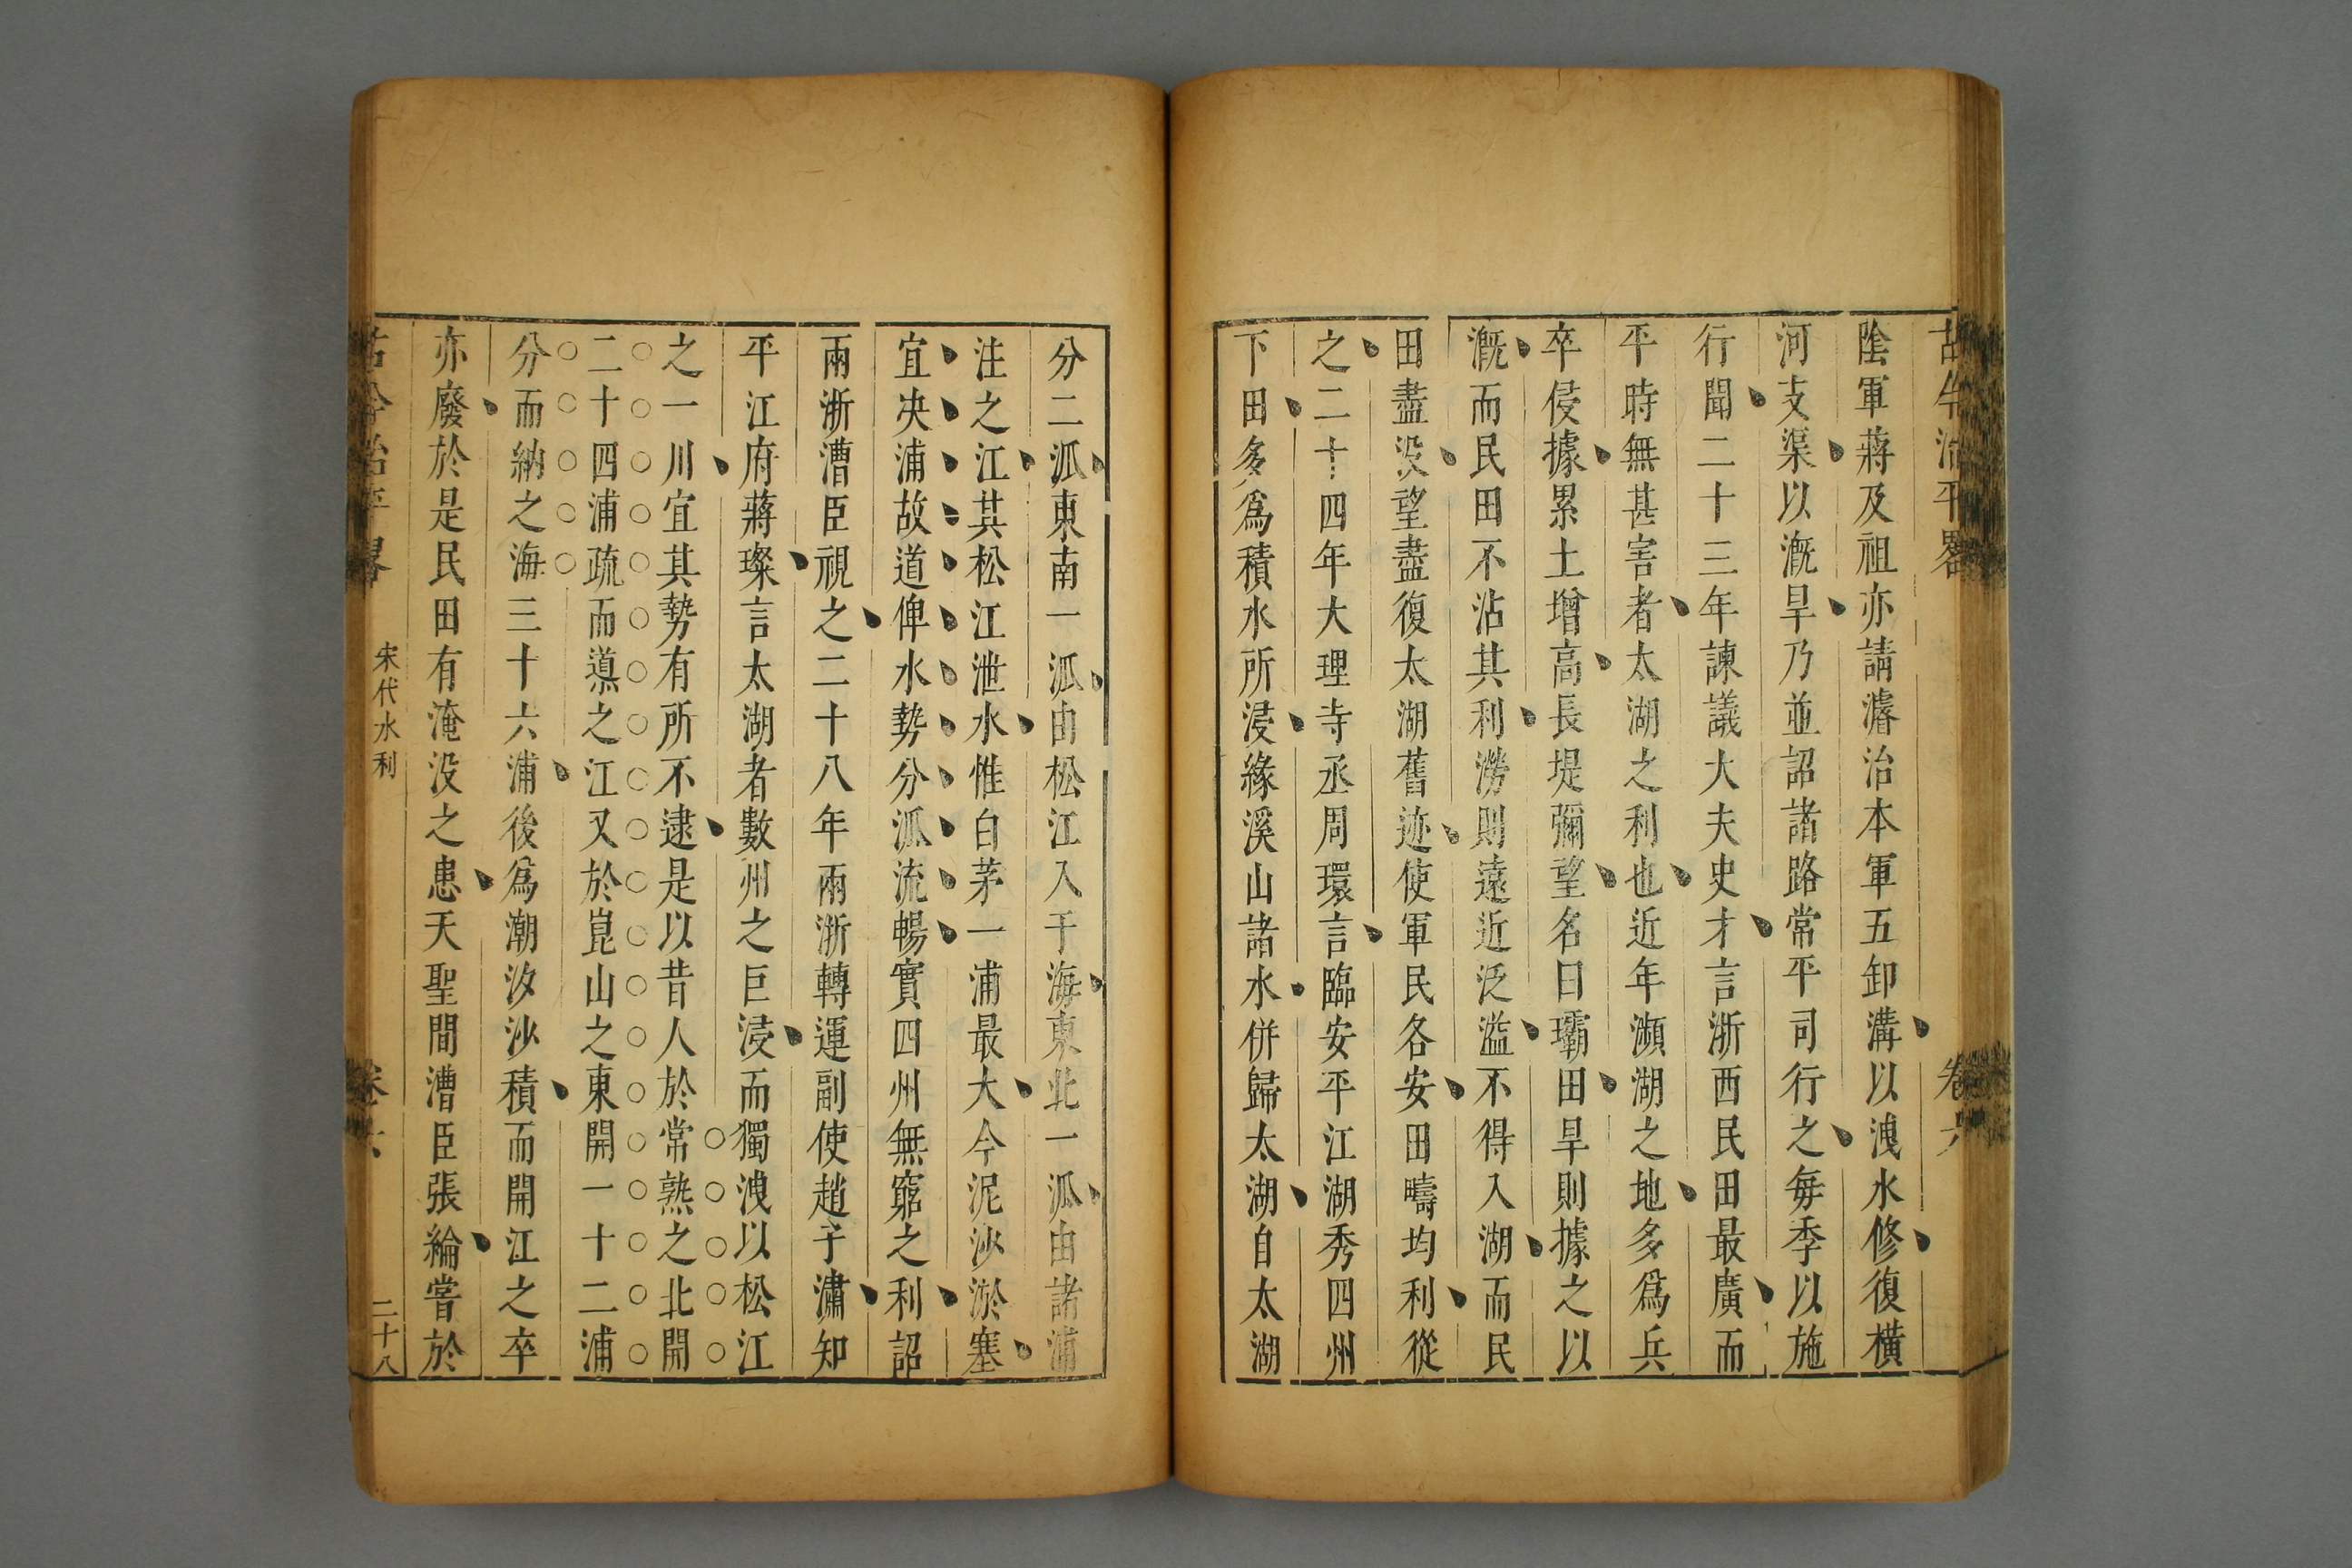 古今治平畧 卷六
陰軍蔣及祖亦請濬治本軍五卸溝以洩水修復橫
河支渠以漑旱乃並詔諸路常平司行之每季以施
行聞二十三年諫議大夫史才言浙西民田最廣而
平時無甚害者太湖之利也近年瀕湖之地多爲兵
卒侵據累土增高長堤彌望名曰壩田旱則據之以
漑而民田不沾其利澇則遠近泛溢不得入湖而民
田盡没望盡復太湖舊迹使軍民各安田疇均利從
之二十四年大理寺丞周環言臨安平江湖秀四州
下田多爲積水所浸緣溪山諸水併歸太湖自太湖
分二派東南一派由松江入于海東北一派由諸浦
注之江其松江泄水惟白茅一浦最大今泥沙淤塞
宜决浦故道俾水勢分派流暢實四州無窮之利詔
兩浙漕臣視之二十八年兩浙轉運副使趙子潚知
平江府蔣璨言太湖者數州之巨浸而獨洩以松江
之一川宜其勢有所不逮是以昔人於常熟之北開
二十四浦疏而導之江又於崑山之東開一十二浦
分而納之海三十六浦後爲潮汐沙積而開江之卒
亦廢於是民田有淹没之患天聖間漕臣張綸嘗於
古今治平畧 宋代水利 卷六 二十八